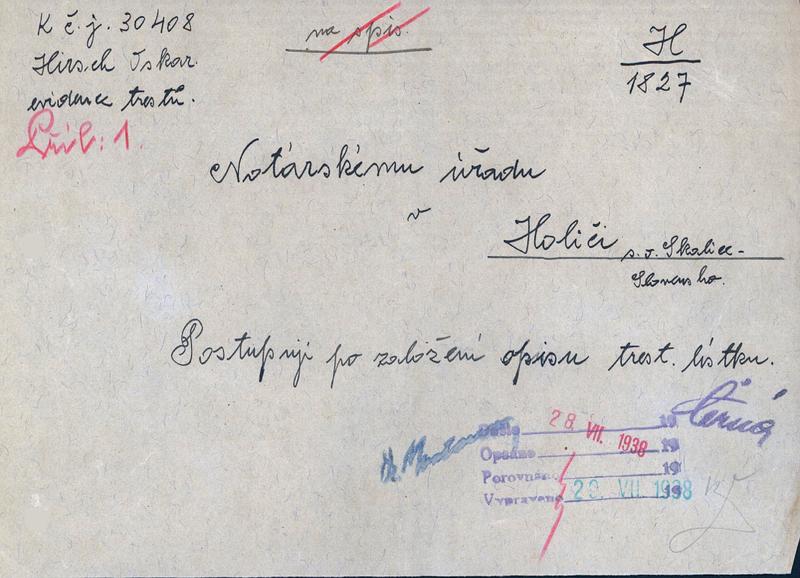 K č. j. 30408
Hirsch Oskar.
evidence trestů.
Příl: 1.
na opis.
H
1827
Notárskému úřadu
v
Holiči s. o. Skalica -
Slovensko.
Postupuji po založení opisu trest. lístku.
Došlo 28. VII. 1938 19
Opsáno 19
Porovnáno 19
Vypraveno 29. VII. 1938 19
Černá